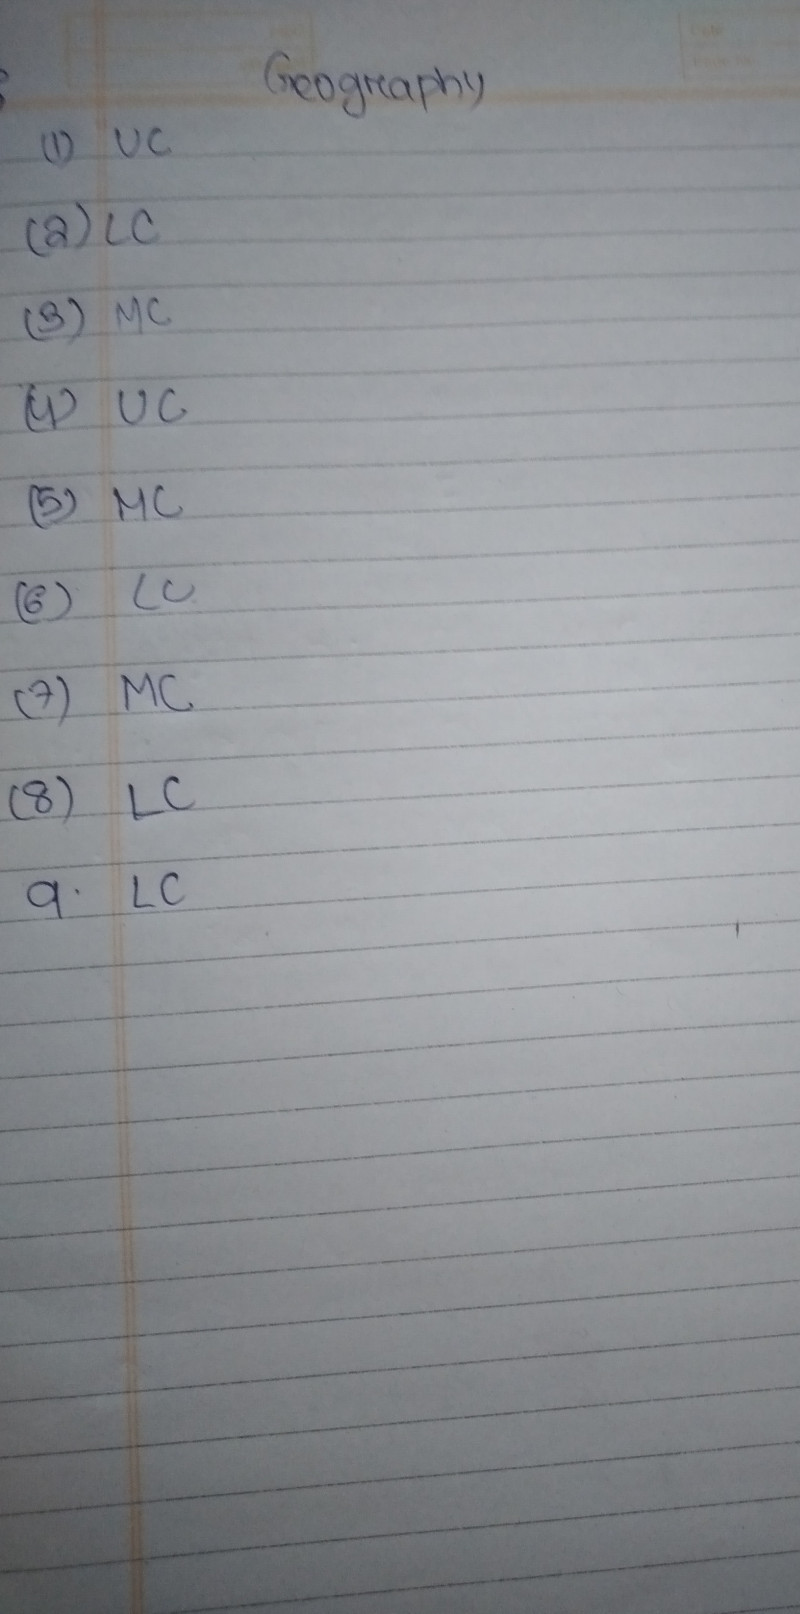 Geography
(1) UC
(2) LC
(3) MC
(4) UC
(5) MC
(6) LC
(7) MC
(8) LC
9. LC